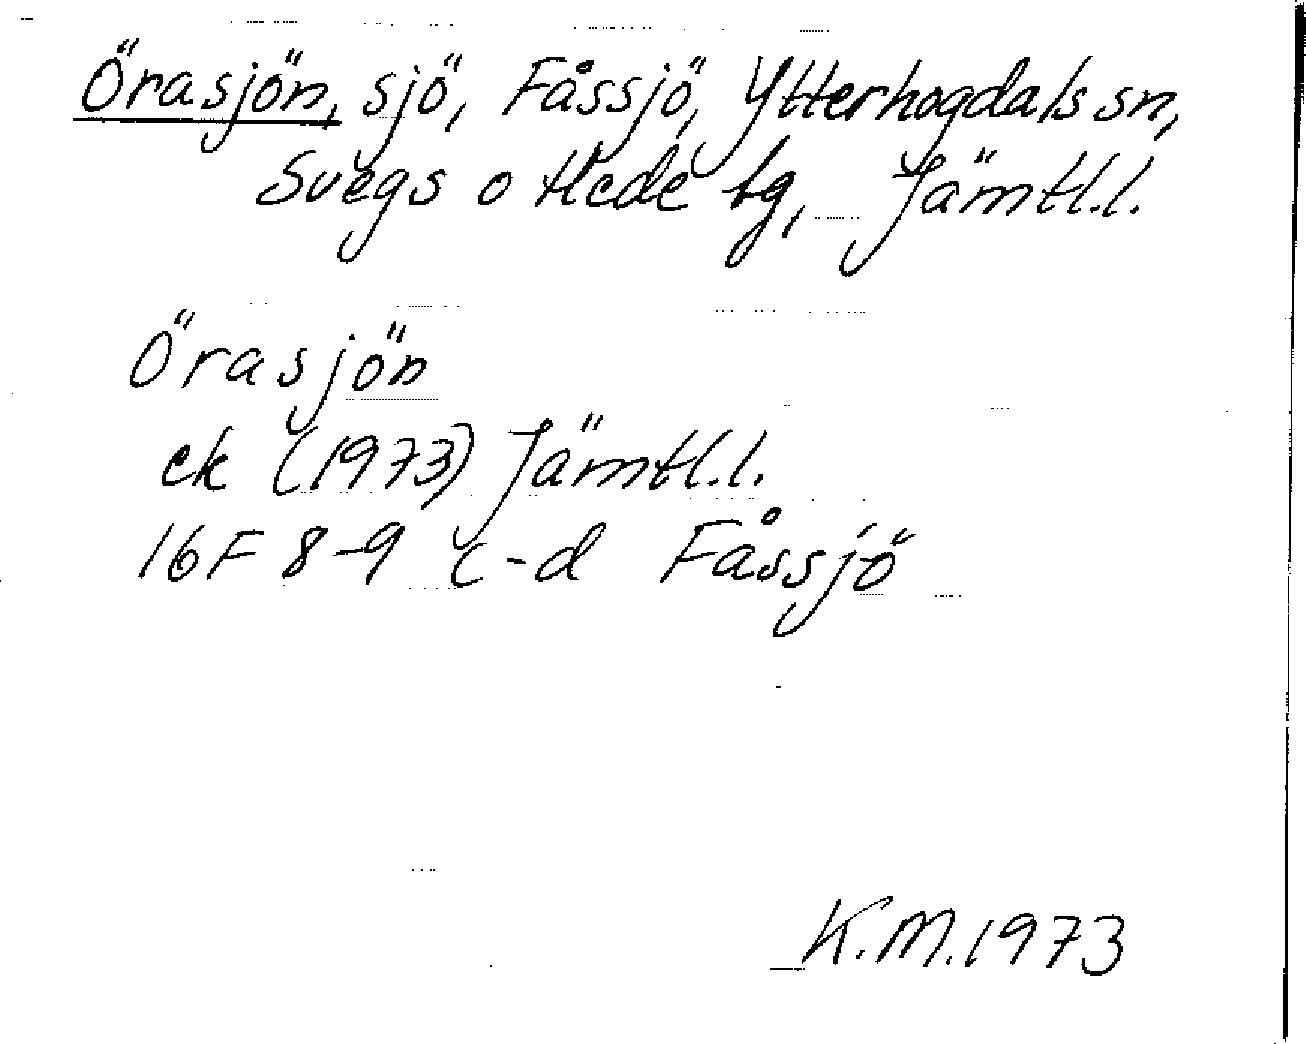 Örasjön, sjö, Fåssjö, Ytterhogdals sn,
Svegs o Hede tg, Jämtl.l.
Örasjön
ek (1973) Jämtl.l.
16F 8-9 c-d Fåssjö
K.M.1973